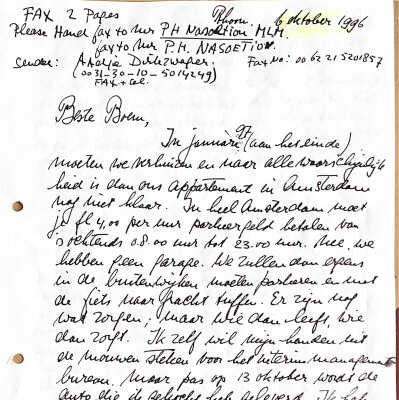 FAX 2 Pages Rhoon, 6 oktober 1996
Please Hand fax to Mr P.H. Nasoetion MLM.
fax to Mr P.H. NASOETION. Fax No: 00 62 21 5201857
Sender: Andja
(0031-30-10-5014249)
FAX + tel.
Beste Boem,
In januari '97 (aan het einde)
moeten we verhuizen en naar alle waarschijnlijk
heid is dan ons appartement in Amsterdam
nog niet klaar. In heel Amsterdam moet
je fl 4,00 per uur parkeergeld betalen van
's ochtends 08.00 uur tot 23.00 uur. Nee, we
hebben geen garage. We zullen dan ergens
in de buitenwijken moeten parkeren en met
de fiets naar Gracht tuffen. Er zijn nog
wat zorgen; maar wie dan leeft, wie
dan zorgt. Ik zelf wil mijn handen uit
de mouwen steken voor het interim management
bureau. Maar pas op 13 oktober wordt de
auto die ik heb geleverd. Ik heb